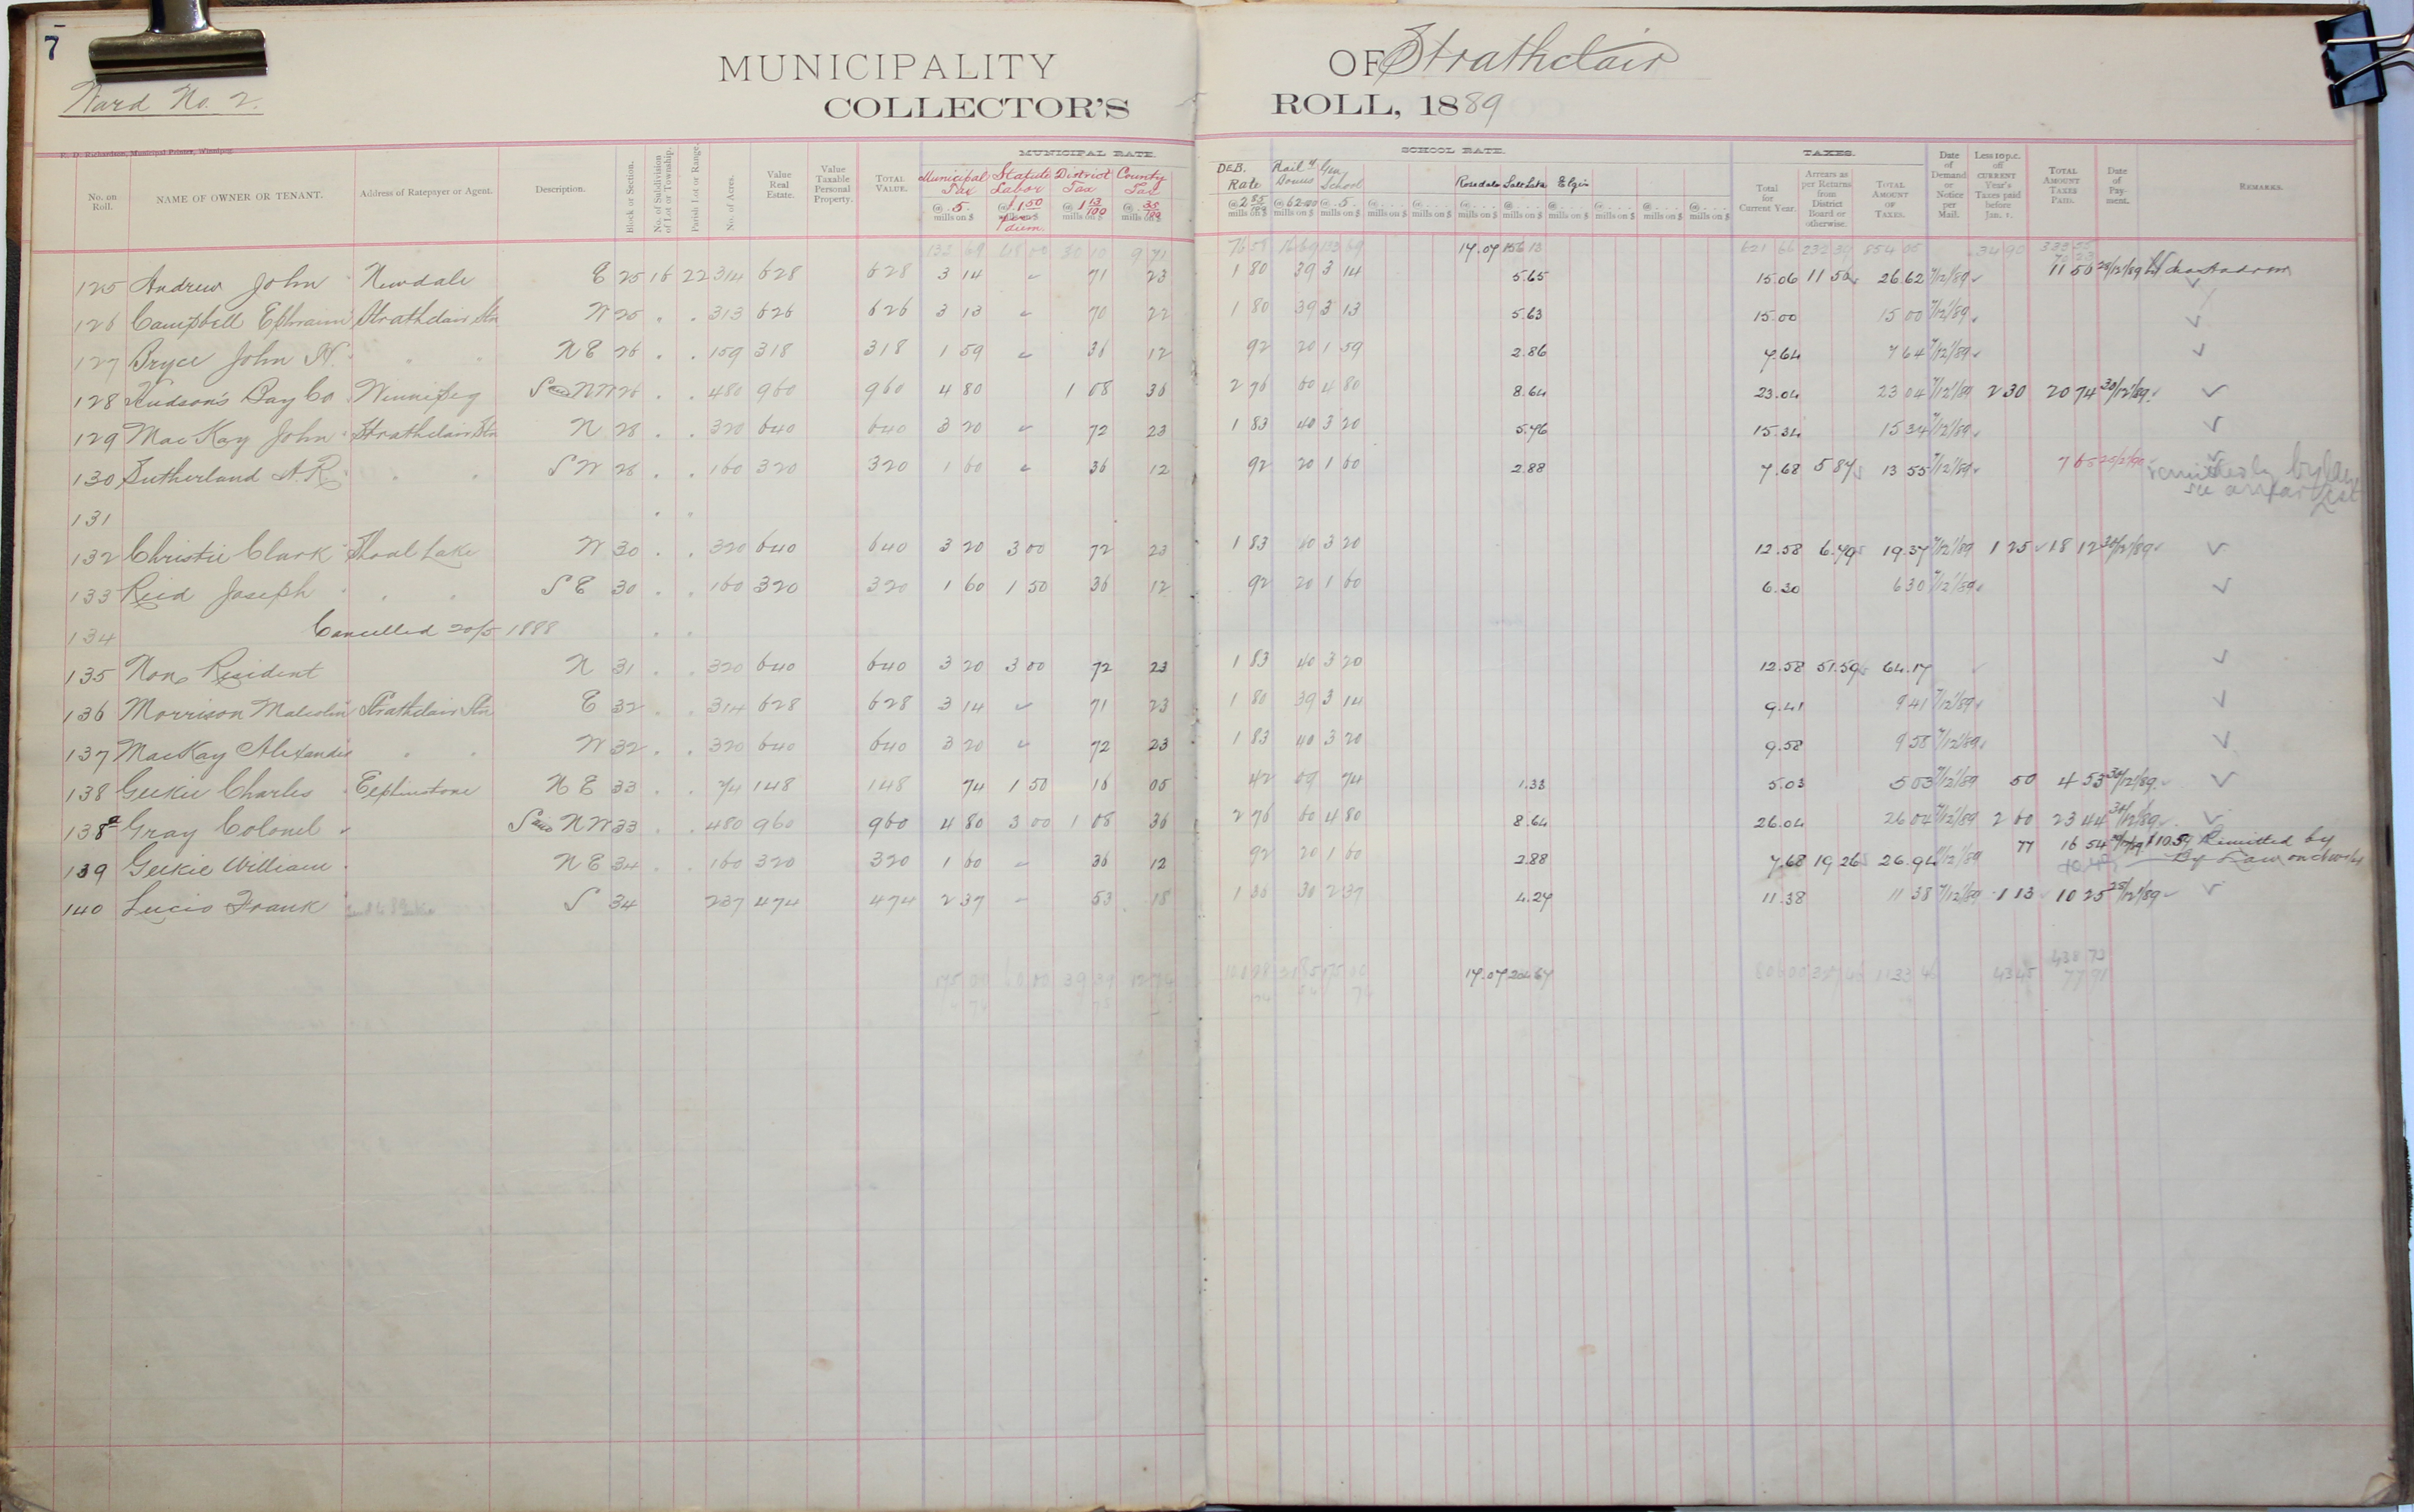 7
MUNICIPALITY OF Strathclair
Ward No. 2.
COLLECTOR'S ROLL, 1889
R. D. Richardson, Municipal Printer, Winnipeg.
MUNICIPAL RATE. SCHOOL RATE. TAXES.
No. on Roll. NAME OF OWNER OR TENANT. Address of Ratepayer or Agent. Description. Block or Section. No. of Subdivision of Lot or Township. Parish Lot or Range. No. of Acres. Value Real Estate. Value Taxable Personal Property. TOTAL VALUE. Municipal Tax @ 5 mills on $ Statute Labor @ 1 50 per diem. District Tax @ 1 13/100 mills on $ County Tax @ 35/89 mills on $ DEB. Rate mills on $ Rail'y Bonus mills on $ Gen School @ 5. mills on $ Rosedale Salt Lake Elgin Total for Current Year. Arrears as per Returns from District Board or otherwise. TOTAL AMOUNT OF TAXES. Date of Demand or Notice per Mail. Less 10 p.c. off CURRENT Year's Taxes paid before Jan. 1. TOTAL AMOUNT TAXES PAID. Date of Payment. REMARKS.
133 69 48 00 30 10 9 71 76 55 16 69 133 69 17.07 156 13 621 66 232 39 854 05 34 90 333 55
125 Andrew John Newdale E 25 16 22 314 628 628 3 14 71 23 1 80 39 3 14 5.65 15.06 11 56 26.62 7/12/89 11 56 28/12/89
126 Campbell Ephraim Strathclair Stn W 25 . . 313 626 626 3 13 70 22 1 80 39 3 13 5.63 15.00 15 00 7/12/89
127 Bryce John N. " " N E 26 . . 159 318 318 1 59 36 12 92 20 1 59 2.86 7.64 7 64 7/12/89
128 Hudson's Bay Co Winnipeg S and N W 26 . . 480 960 960 4 80 1 08 36 2 76 60 4 80 8.64 23.04 23 04 7/12/89 2 30 20 74 30/12/89
129 MacKay John Strathclair Stn N 28 . . 320 640 640 3 20 72 23 1 83 40 3 20 5.76 15.34 15 34 7/12/89
130 Sutherland A. R. " " S W 28 . . 160 320 320 1 60 36 12 92 20 1 60 2.88 7.68 5 87 13 55 7/12/89 7 65 remitted by by law
see arrear list
131 . .
132 Christie Clark Shoal Lake W 30 . . 320 640 640 3 20 3 00 72 23 1 83 40 3 20 12.58 6.79 19.37 7/12/89 1 25 18 12 30/12/89
133 Reid Joseph " " S E 30 . . 160 320 320 1 60 1 50 36 12 92 20 1 60 6.30 6 30 7/12/89
134 Cancelled 20/5 1888 . .
135 Non Resident N 31 . . 320 640 640 3 20 3 00 72 23 1 83 40 3 20 12.58 51.59 64.17
136 Morrison Malcolm Strathclair Stn E 32 . . 314 628 628 3 14 71 23 1 80 39 3 14 9.41 9 41 7/12/89
137 MacKay Alexander " " W 32 . . 320 640 640 3 20 72 23 1 83 40 3 20 9.58 9 58 7/12/89
138 Geekie Charles Elphinstone N E 33 . . 74 148 148 74 1 50 16 05 42 09 74 1.33 5.03 5 03 7/12/89 50 4 53 30/12/89
138a Gray Colonel S and N W 33 . . 480 960 960 4 80 3 00 1 08 36 2 76 60 4 80 8.64 26.04 26 04 7/12/89 2 60 23 44 31/12/89
139 Geekie William N E 34 . . 160 320 320 1 60 36 12 92 20 1 60 2.88 7.68 19 26 26.94 7/12/89 77 16 54 $10.59 Remitted by
By Law
140 Lucio Frank S 34 237 474 474 2 37 53 18 1 30 30 2 37 4.27 11.38 11 38 7/12/89 1 13 10 25 28/12/89
438 73
175 00 60 00 39 39 17.07 204 67 1133 46 43 45 77 91